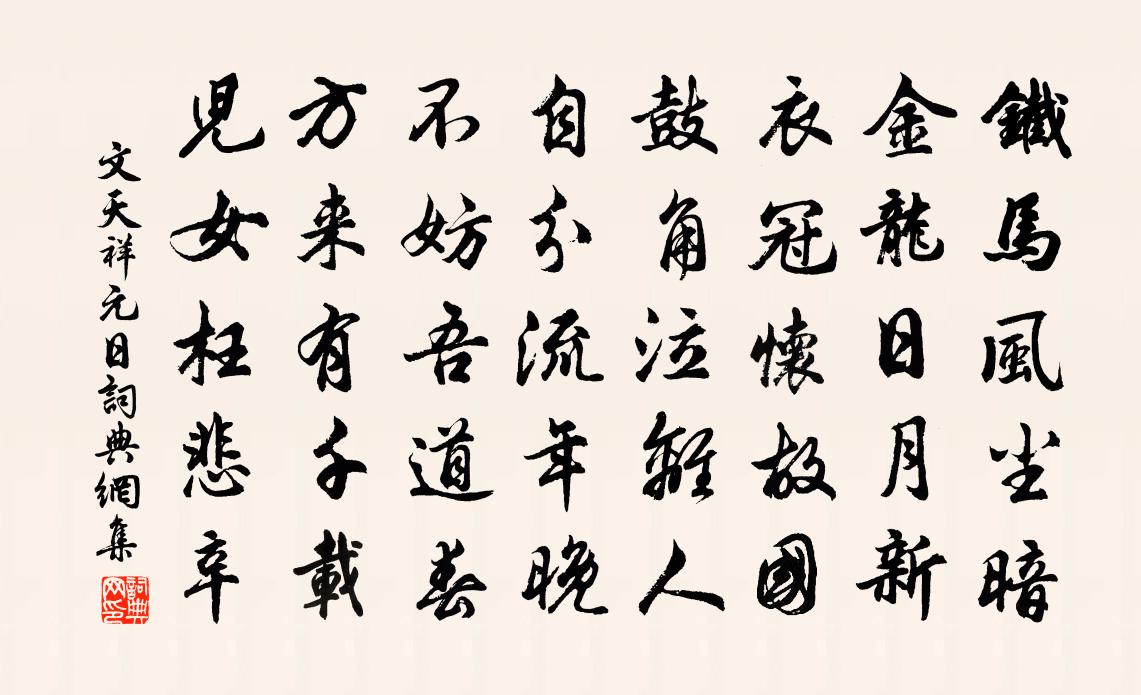 鐵馬風尘暗
金龍日月新
衣冠懷故國
鼓角泣離人
自分流年晚
不妨吾道春
方来有千載
兒女枉悲辛
文天祥元日詞典網集
詞典网印